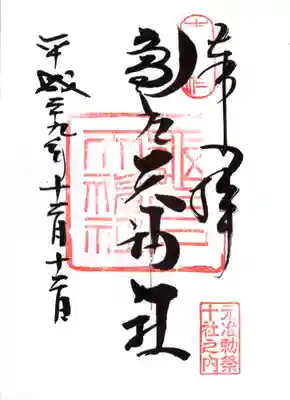 奉拝
亀戸天神社
平成二十九年十二月十二日
元准勅祭
十社之内